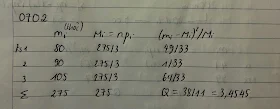 0702
mᵢ Mᵢ = n·pᵢ (mᵢ - Mᵢ)²/Mᵢ
1 80 275/3 49/33
2 90 275/3 1/33
3 105 275/3 64/33
Σ 275 275 Q = 38/11 = 3,4545